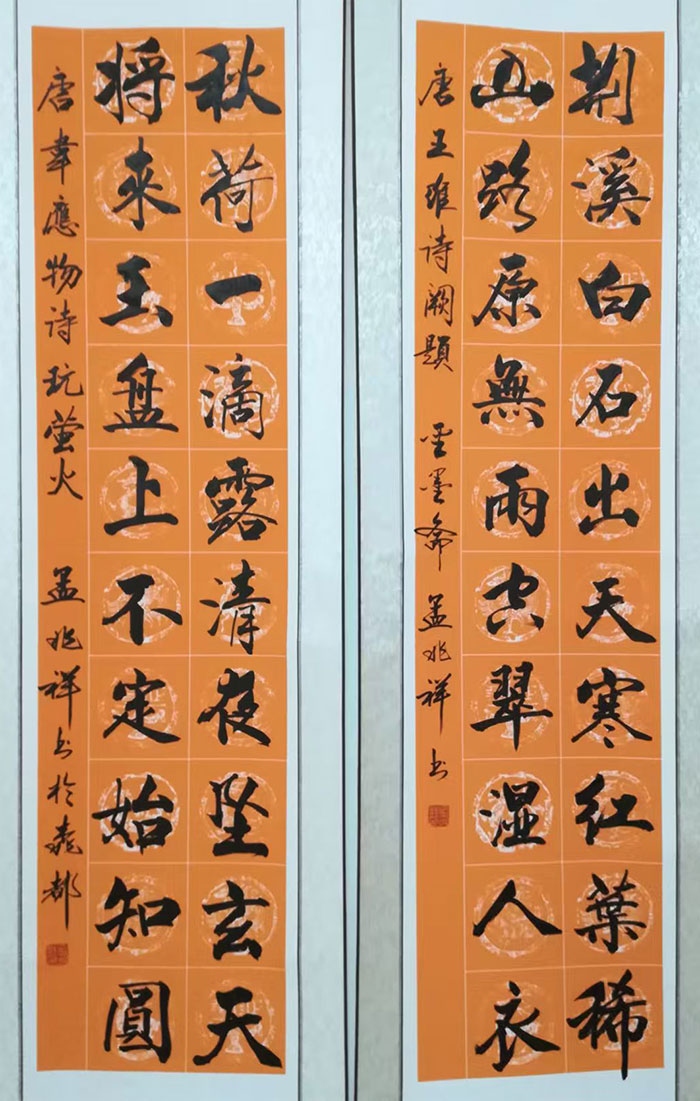 荆溪白石出天寒红葉稀
山路原無雨空翠湿人衣
唐王维诗阙题 墨斋 孟兆祥书
秋荷一滴露清夜坠玄天
将来玉盘上不定始知圓
唐韋應物诗玩萤火 孟兆祥书於 都